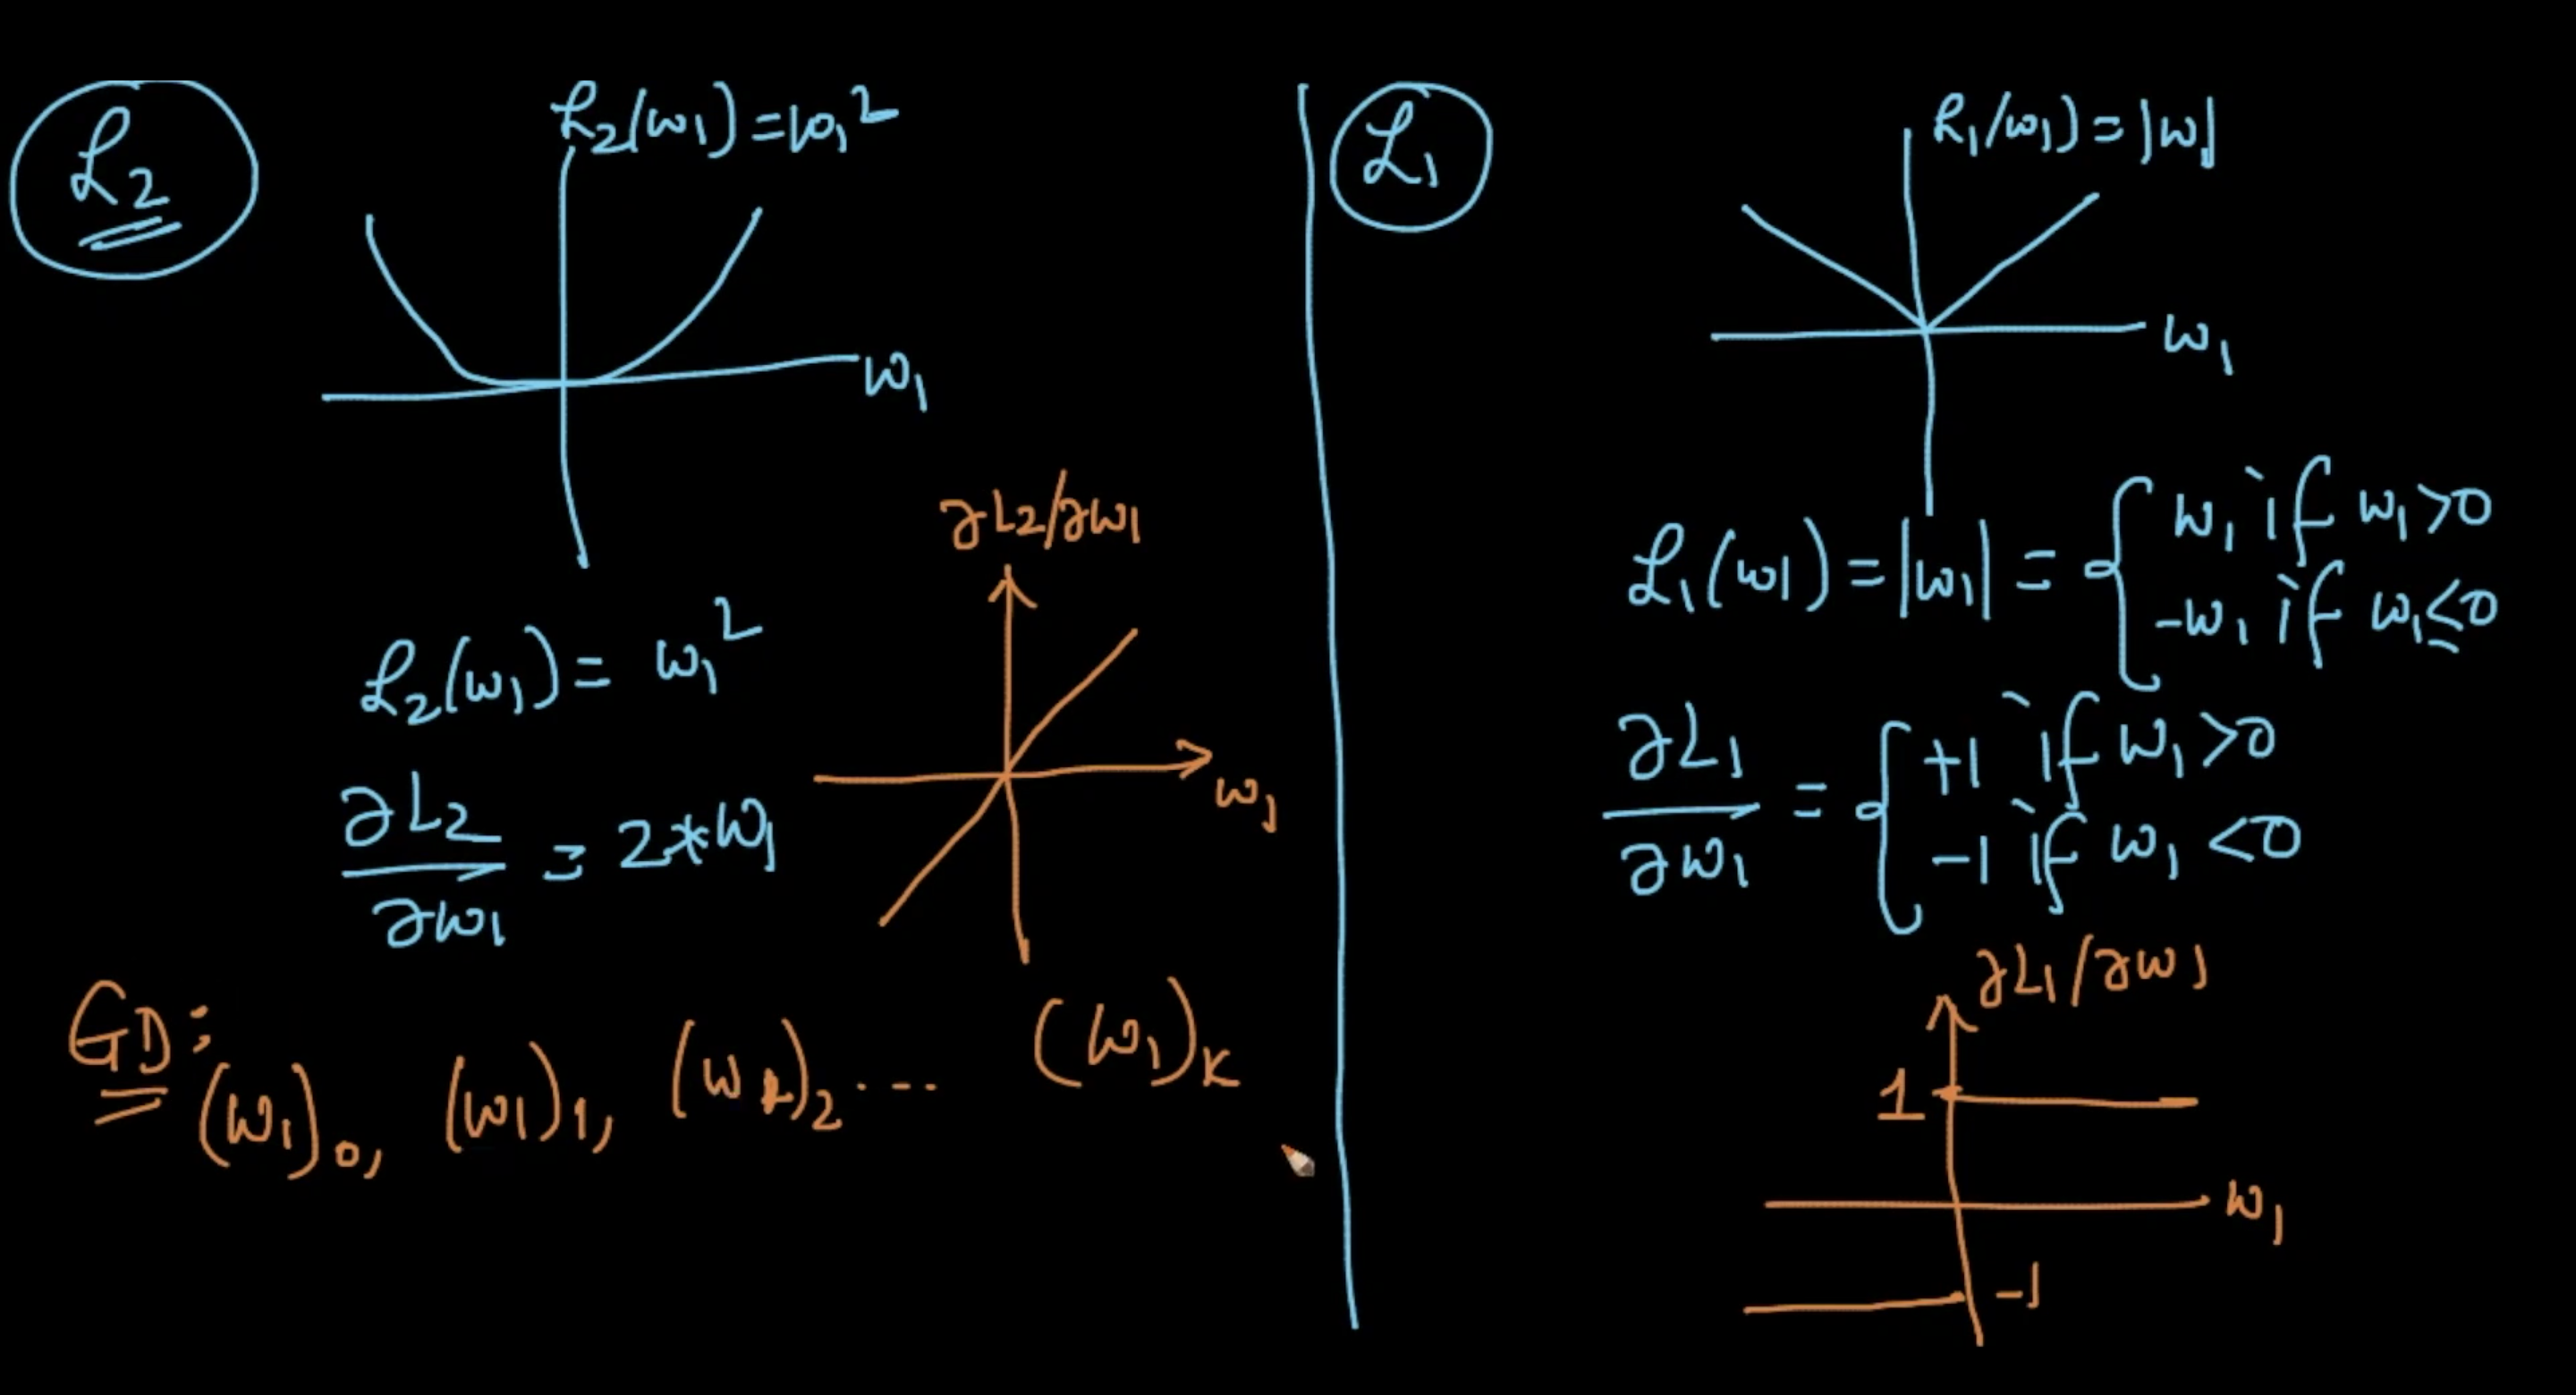 ℒ₂
ℒ₂(w₁) = w₁²
w₁
∂L₂/∂w₁
w₁
ℒ₂(w₁) = w₁²
∂L₂/∂w₁ = 2*w₁
GD:
(w₁)₀, (w₁)₁, (w₁)₂ ... (w₁)ₖ
ℒ₁
ℒ₁(w₁) = |w₁|
w₁
ℒ₁(w₁) = |w₁| = { w₁ if w₁ > 0
-w₁ if w₁ ≤ 0
∂L₁/∂w₁ = { +1 if w₁ > 0
-1 if w₁ < 0
∂L₁/∂w₁
1
w₁
-1